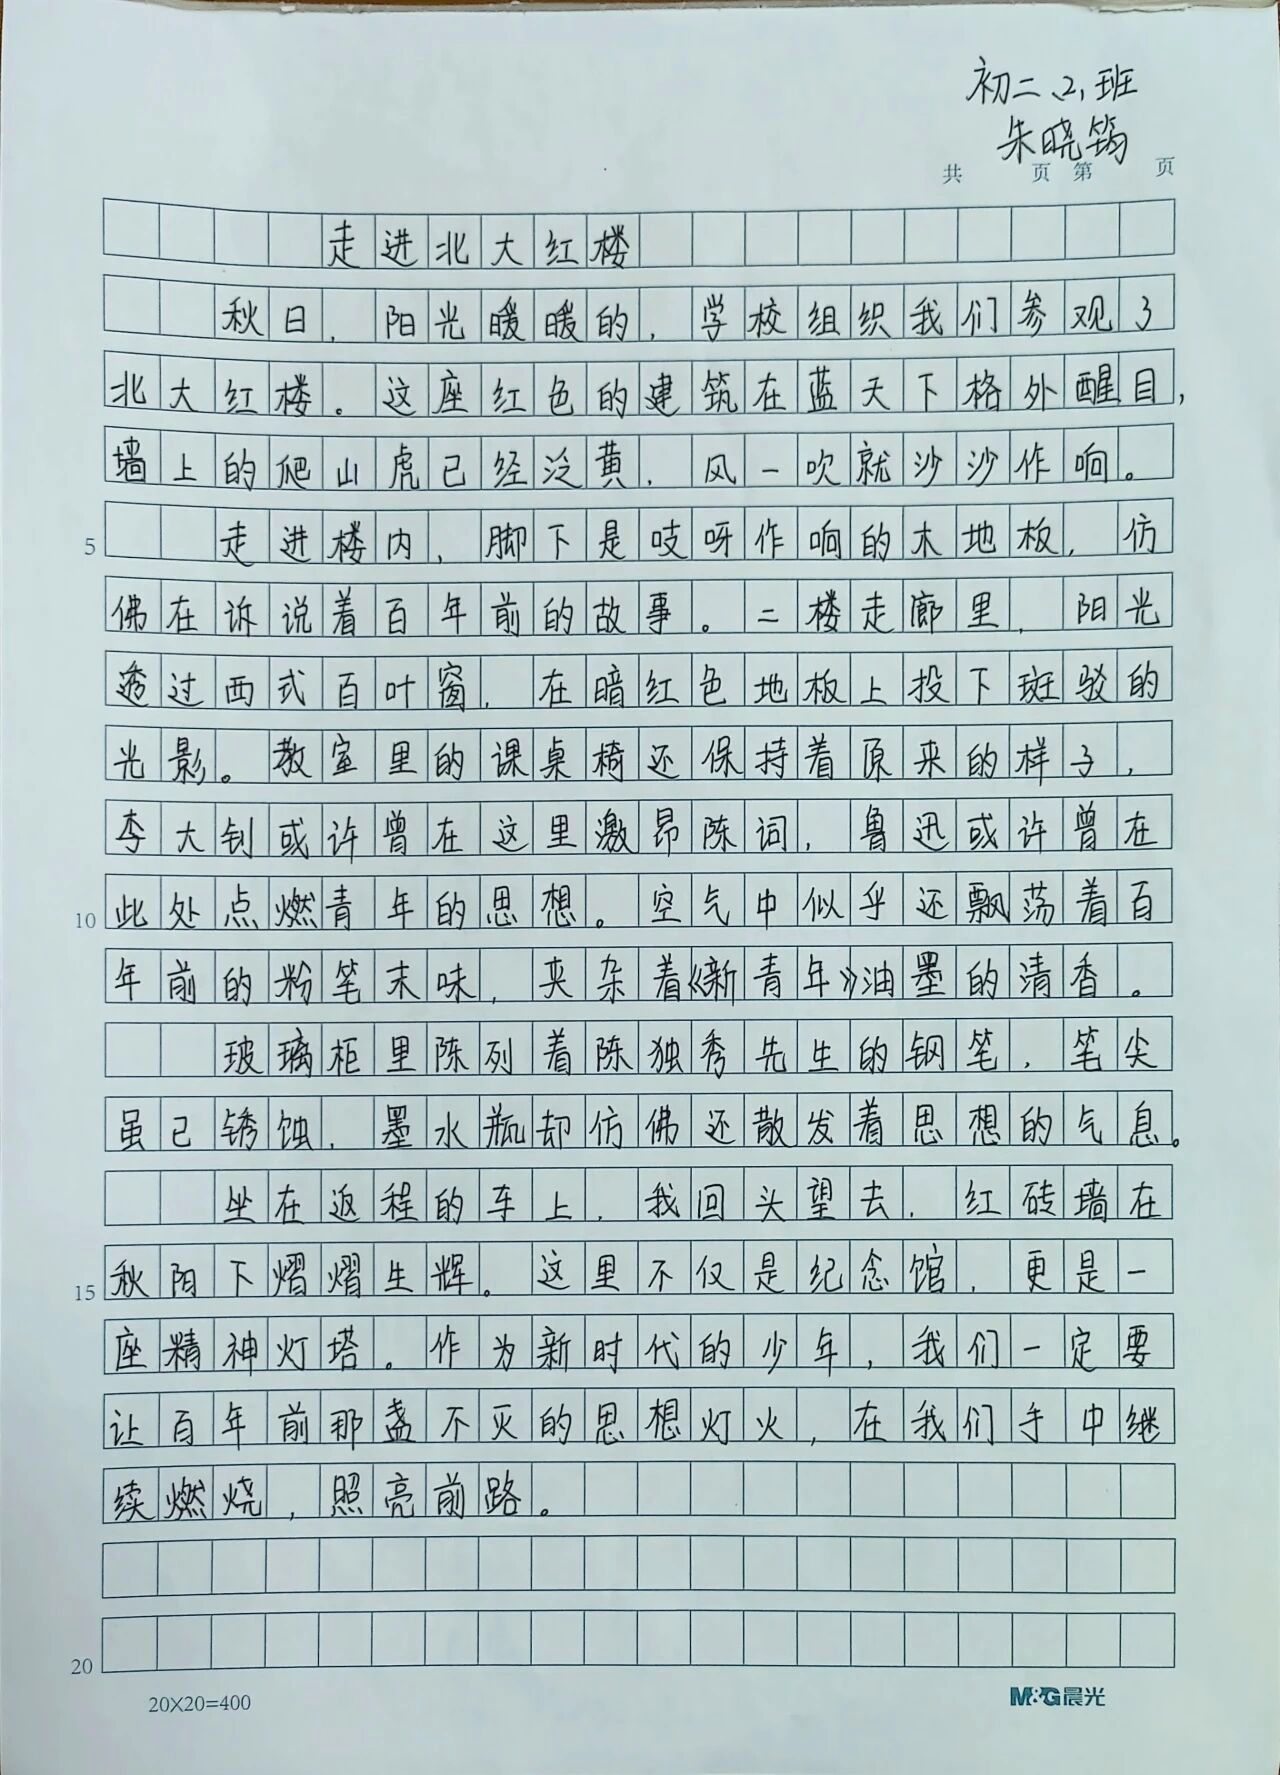 初二、2、班
朱晓筠
共 页 第 页
走进北大红楼
秋日，阳光暖暖的，学校组织我们参观了
北大红楼。这座红色的建筑在蓝天下格外醒目，
墙上的爬山虎已经泛黄，风一吹就沙沙作响。
5 走进楼内，脚下是吱呀作响的木地板，仿
佛在诉说着百年前的故事。二楼走廊里，阳光
透过西式百叶窗，在暗红色地板上投下斑驳的
光影。教室里的课桌椅还保持着原来的样子，
李大钊或许曾在这里激昂陈词，鲁迅或许曾在
10 此处点燃青年的思想。空气中似乎还飘荡着百
年前的粉笔末味，夹杂着《新青年》油墨的清香。
玻璃柜里陈列着陈独秀先生的钢笔，笔尖
虽已锈蚀，墨水瓶却仿佛还散发着思想的气息。
坐在返程的车上，我回头望去，红砖墙在
15 秋阳下熠熠生辉。这里不仅是纪念馆，更是一
座精神灯塔。作为新时代的少年，我们一定要
让百年前那盏不灭的思想灯火，在我们手中继
续燃烧，照亮前路。
20
20×20=400
M&G晨光